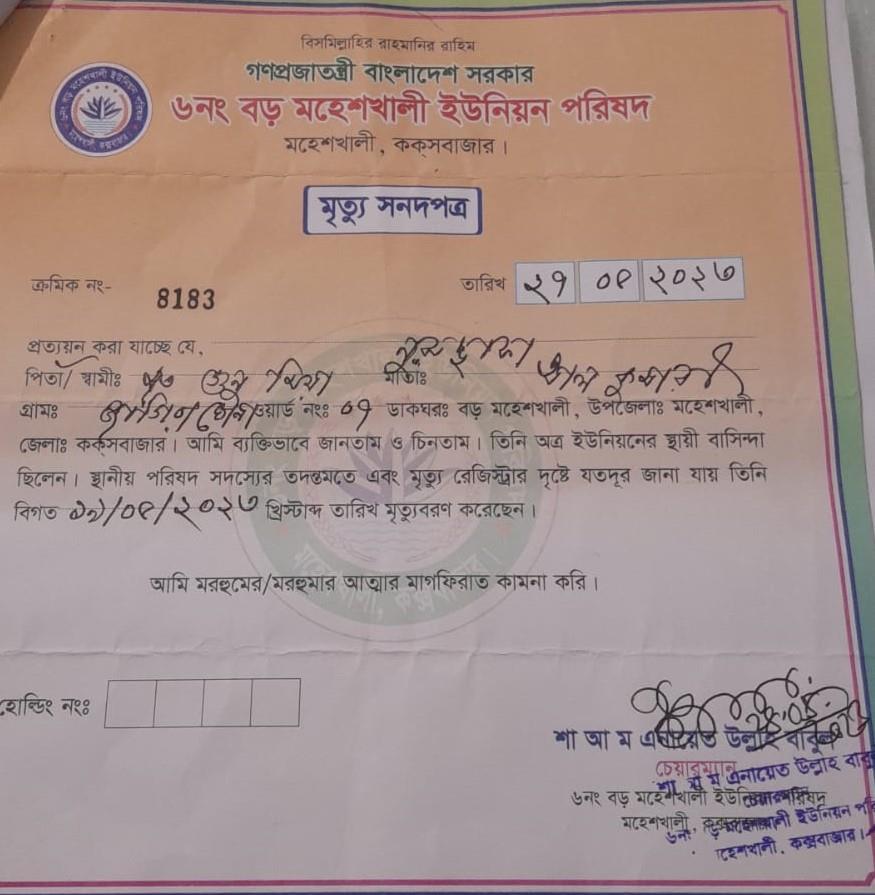 বিসমিল্লাহির রাহমানির রাহিম
গণপ্রজাতন্ত্রী বাংলাদেশ সরকার
৬নং বড় মহেশখালী ইউনিয়ন পরিষদ
মহেশখালী, কক্সবাজার।
মৃত্যু সনদপত্র
ক্রমিক নং- 8183 তারিখ ২৭ ০৪ ২০২৩
প্রত্যয়ন করা যাচ্ছে যে,
পিতা/ স্বামীঃ মৃত মাতাঃ
গ্রামঃ ওয়ার্ড নংঃ ০৭ ডাকঘরঃ বড় মহেশখালী, উপজেলাঃ মহেশখালী,
জেলাঃ কক্সবাজার। আমি ব্যক্তিভাবে জানতাম ও চিনতাম। তিনি অত্র ইউনিয়নের স্থায়ী বাসিন্দা
ছিলেন। স্থানীয় পরিষদ সদস্যের তদন্তমতে এবং মৃত্যু রেজিস্ট্রার দৃষ্টে যতদূর জানা যায় তিনি
বিগত /০৪/২০২৩ খ্রিস্টাব্দ তারিখ মৃত্যুবরণ করেছেন।
আমি মরহুমের/মরহুমার আত্মার মাগফিরাত কামনা করি।
হোল্ডিং নংঃ
শা আ ম এনায়েত উল্লাহ বাবুল
চেয়ারম্যান
ম এনায়েত উল্লাহ
৬নং বড় মহেশখালী ইউনিয়ন পরিষদ
মহেশখালী,
ইউনিয়ন
মহেশখালী, কক্সবাজার।